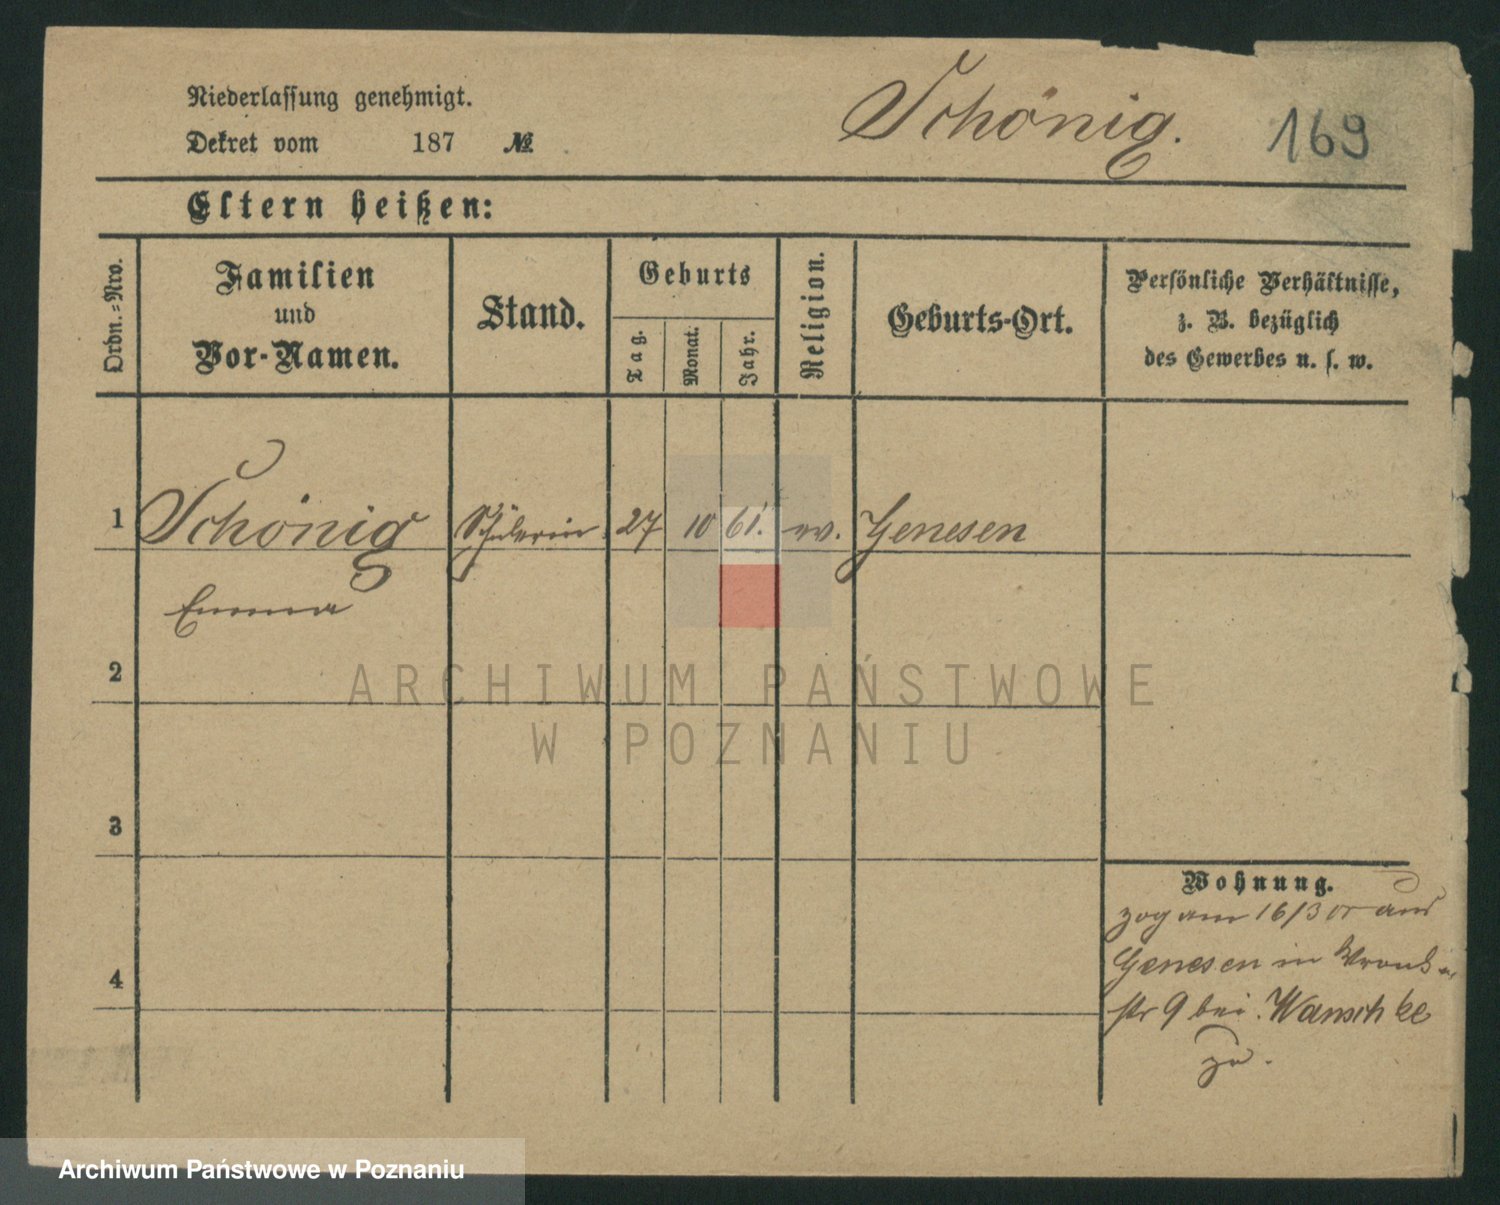 Niederlassung genehmigt.
Dekret vom 187 №
Schönig.
169
Eltern heißen:
Ordn.-Nro.
Familien
und
Vor-Namen.
Stand.
Geburts
Tag.
Monat.
Jahr.
Religion.
Geburts-Ort.
Persönliche Verhältnisse,
z. B. bezüglich
des Gewerbes u. s. w.
1 Schönig Schülerin 27 10 61. ev. Genesen
Emma
2
3
4
Wohnung.
zog am 16/3 aus
Genesen in
str 9 bei Wanschke
zu.
ARCHIWUM PAŃSTWOWE
W POZNANIU
Archiwum Państwowe w Poznaniu